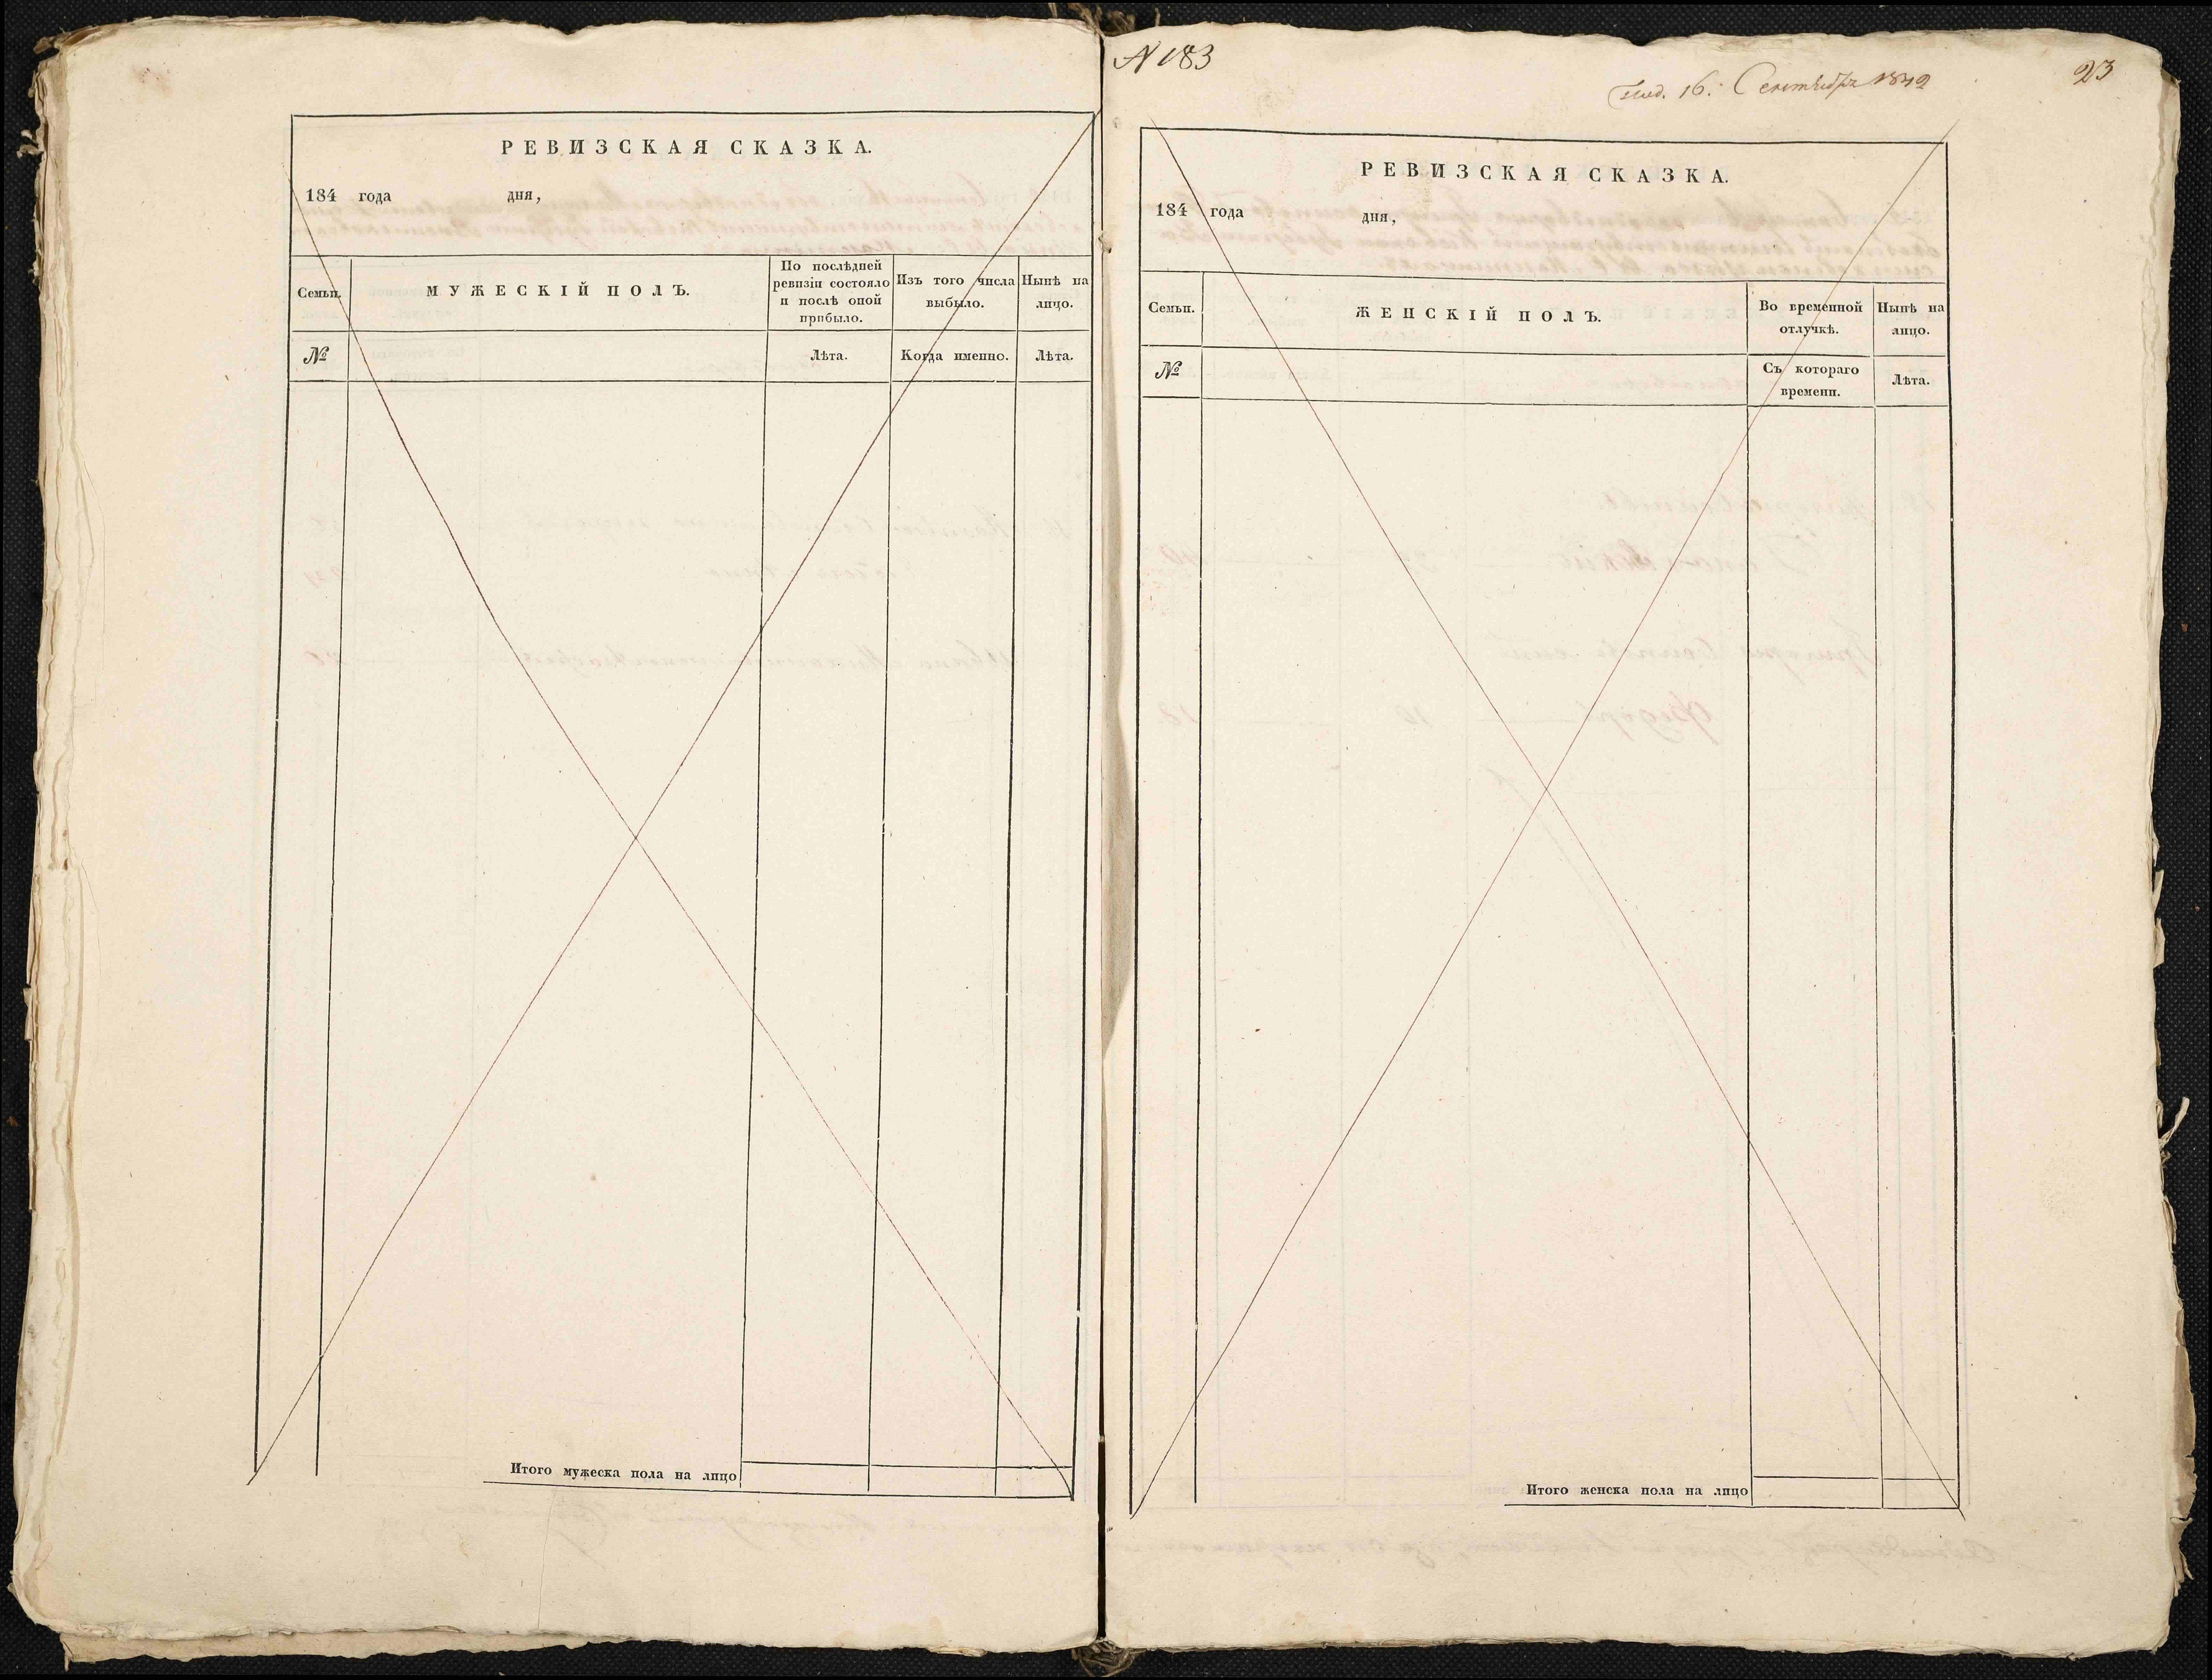 РЕВИЗСКАЯ СКАЗКА.
184 года дня,
Семьи.
МУЖЕСКІЙ ПОЛЪ.
По послѣдней
ревизіи состояло
и послѣ оной
прибыло.
Изъ того числа
выбыло.
Нынѣ на
лицо.
№
Лѣта.
Когда именно.
Лѣта.
Итого мужеска пола на лицо
N 183
16. Сентября 1842
23
РЕВИЗСКАЯ СКАЗКА.
184 года дня,
Семьи.
ЖЕНСКІЙ ПОЛЪ.
Во временной
отлучкѣ.
Нынѣ на
лицо.
№
Съ котораго
времени.
Лѣта.
Итого женска пола на лицо